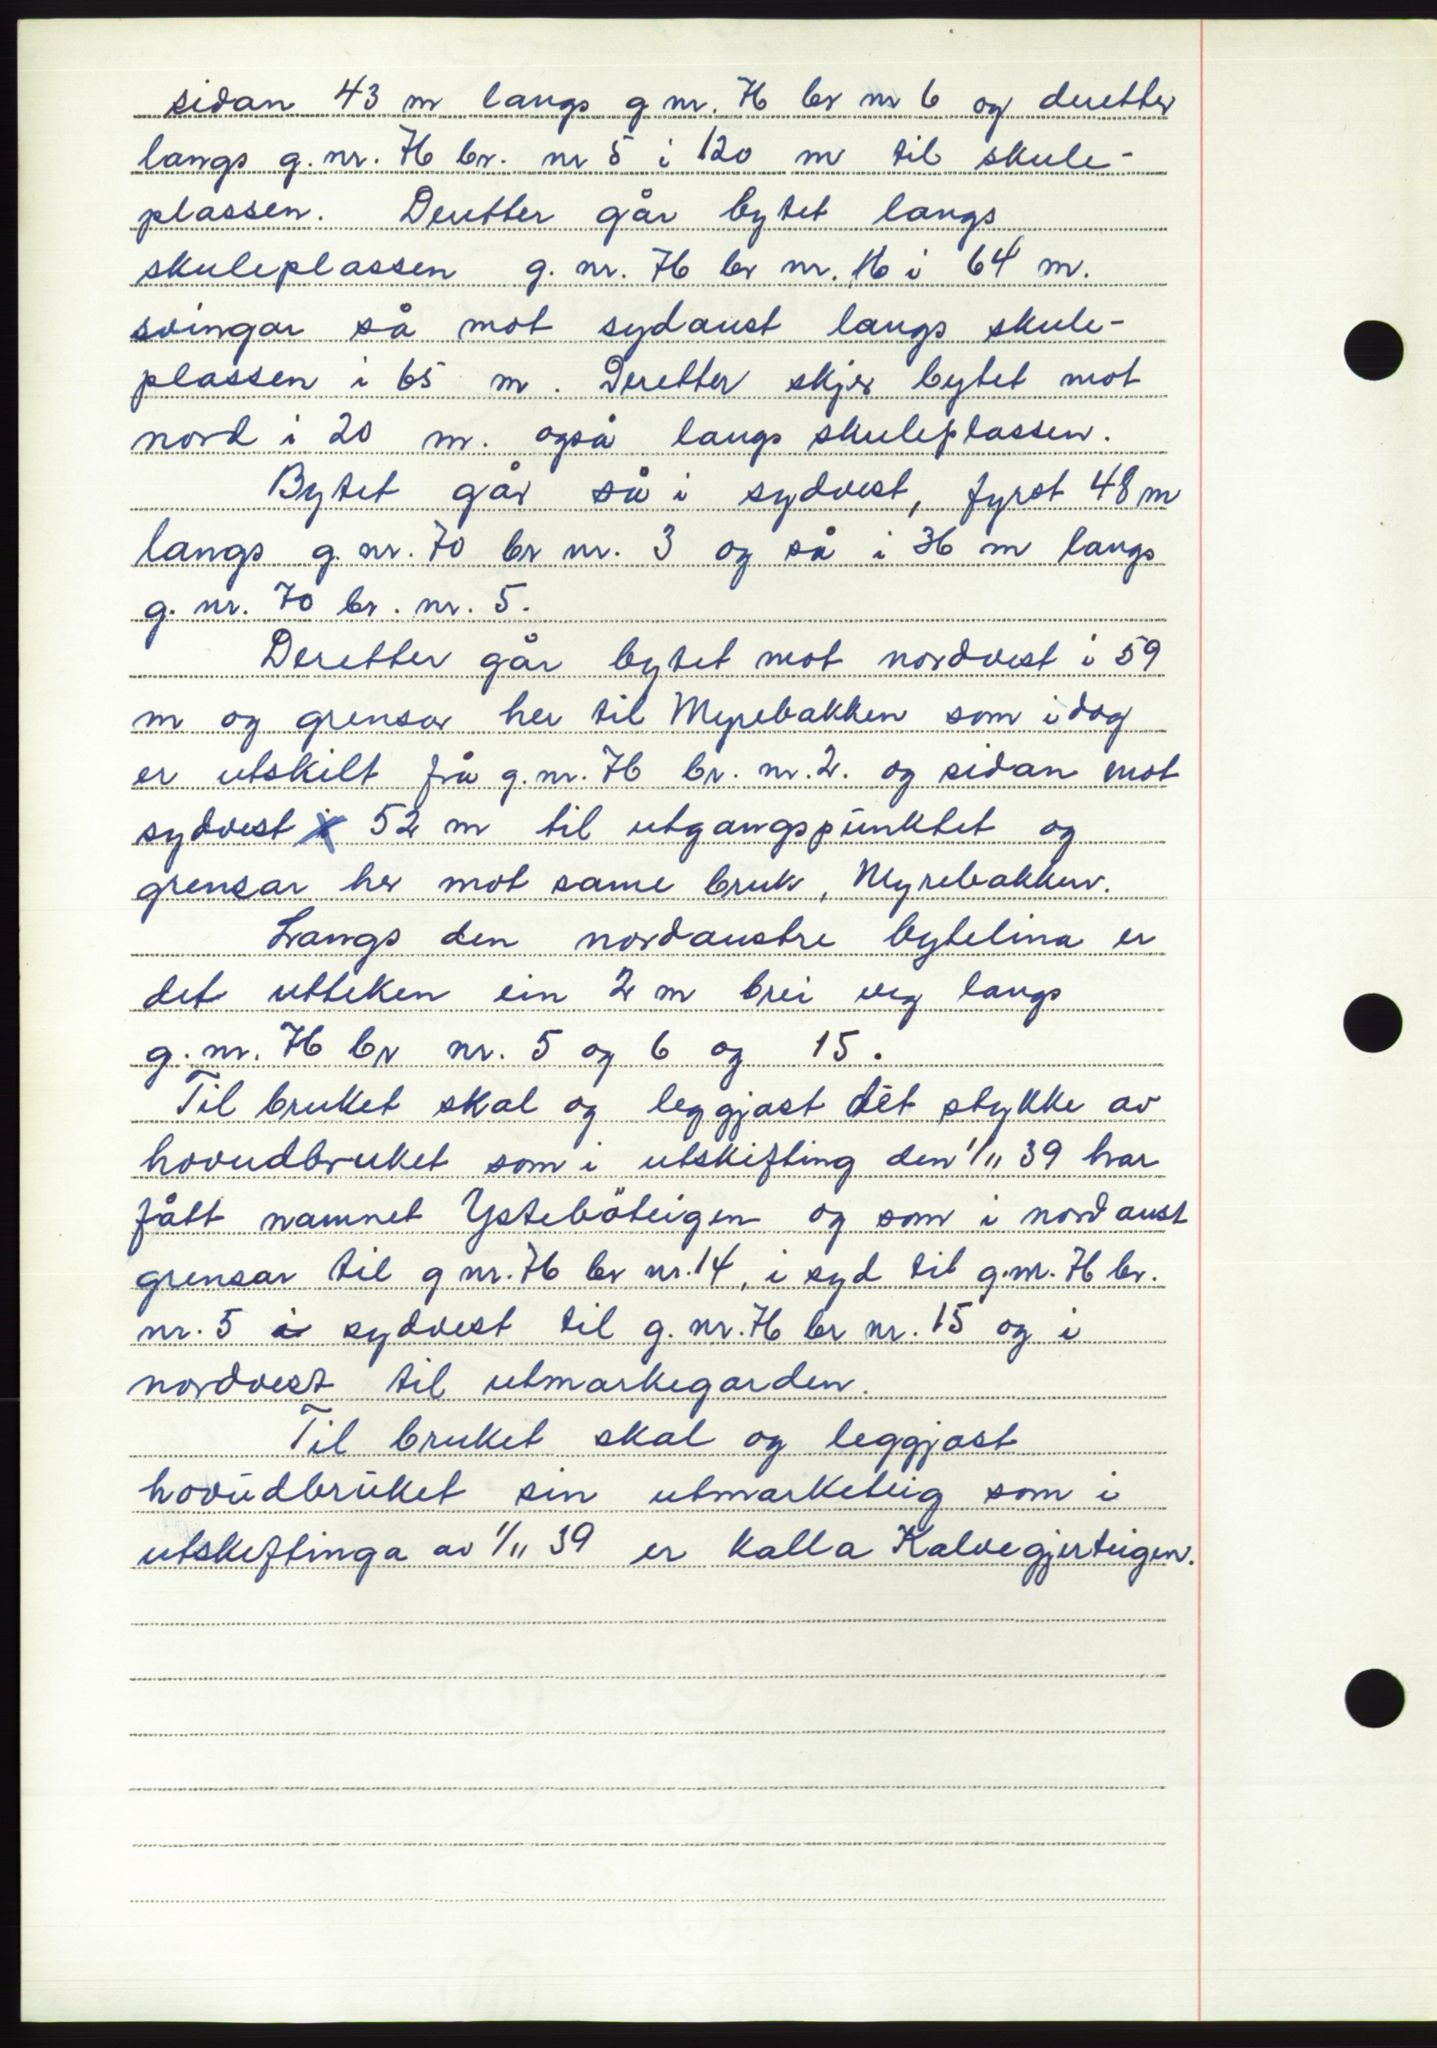 sidan 43 m langs g nr. 76 br nr 6 og deretter
langs g. nr. 76 br. nr 5 i 120 m til skule-
plassen. Deretter går bytet langs
skuleplassen g. nr. 76 br nr. 16 i 64 m.
svingar så mot sydaust langs skule-
plassen i 65 m. Deretter skjer bytet mot
nord i 20 m. også langs skuleplassen.
Bytet går så i sydvest, fyrst 48 m
langs g. nr. 70 br nr. 3 og så i 36 m langs
g. nr. 70 br. nr. 5.
Deretter går bytet mot nordvest i 59
m og grensar her til Myrebakken som idag
er utskilt frå g. nr. 76 br. nr. 2. og sidan mot
sydvest i 52 m til utgangspunktet og
grensar her mot same bruk, Myrebakken.
Langs den nordaustre bytelina er
det utteken ein 2 m brei veg langs
g. nr. 76 br nr. 5 og 6 og 15.
Til bruket skal og leggjast det stykke av
hovudbruket som i utskifting den 1/11 39 har
fått namnet Ysteböteigen og som i nordaust
grensar til g nr. 76 br nr. 14, i syd til g. nr. 76 br.
nr. 5 i sydvest til g. nr. 76 br nr. 15 og i
nordvest til utmarkegarden.
Til bruket skal og leggjast
hovudbruket sin utmarketeig som i
utskiftinga av 1/11 39 er kalla Kalvegjerteigen.